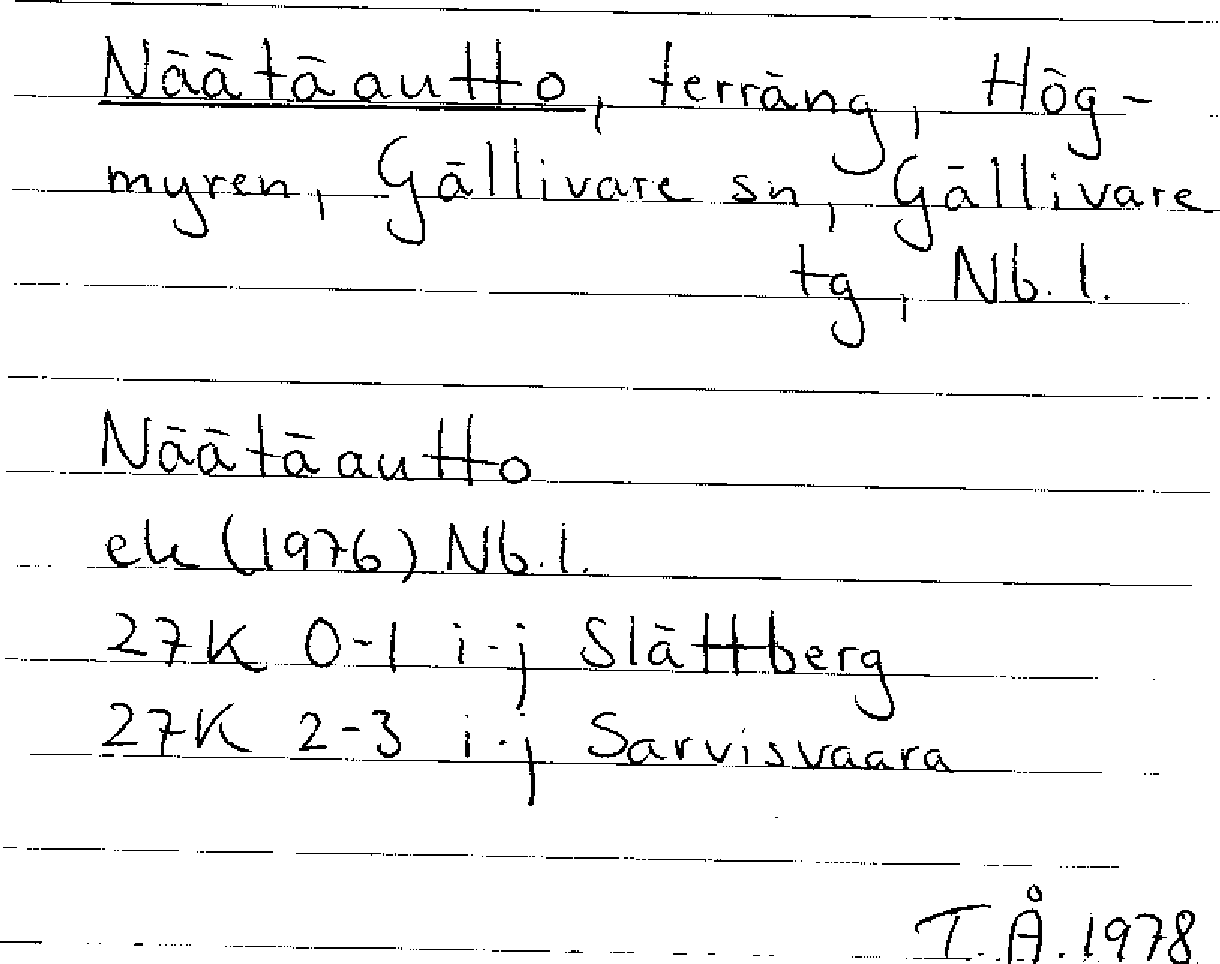 Näätäautto, terräng, Hög-
myren, Gällivare sn, Gällivare
tg, Nb. l.
Näätäautto
ek (1976) Nb. l.
27K 0-1 i-j Slättberg
27K 2-3 i-j Sarvisvaara
T.Å. 1978